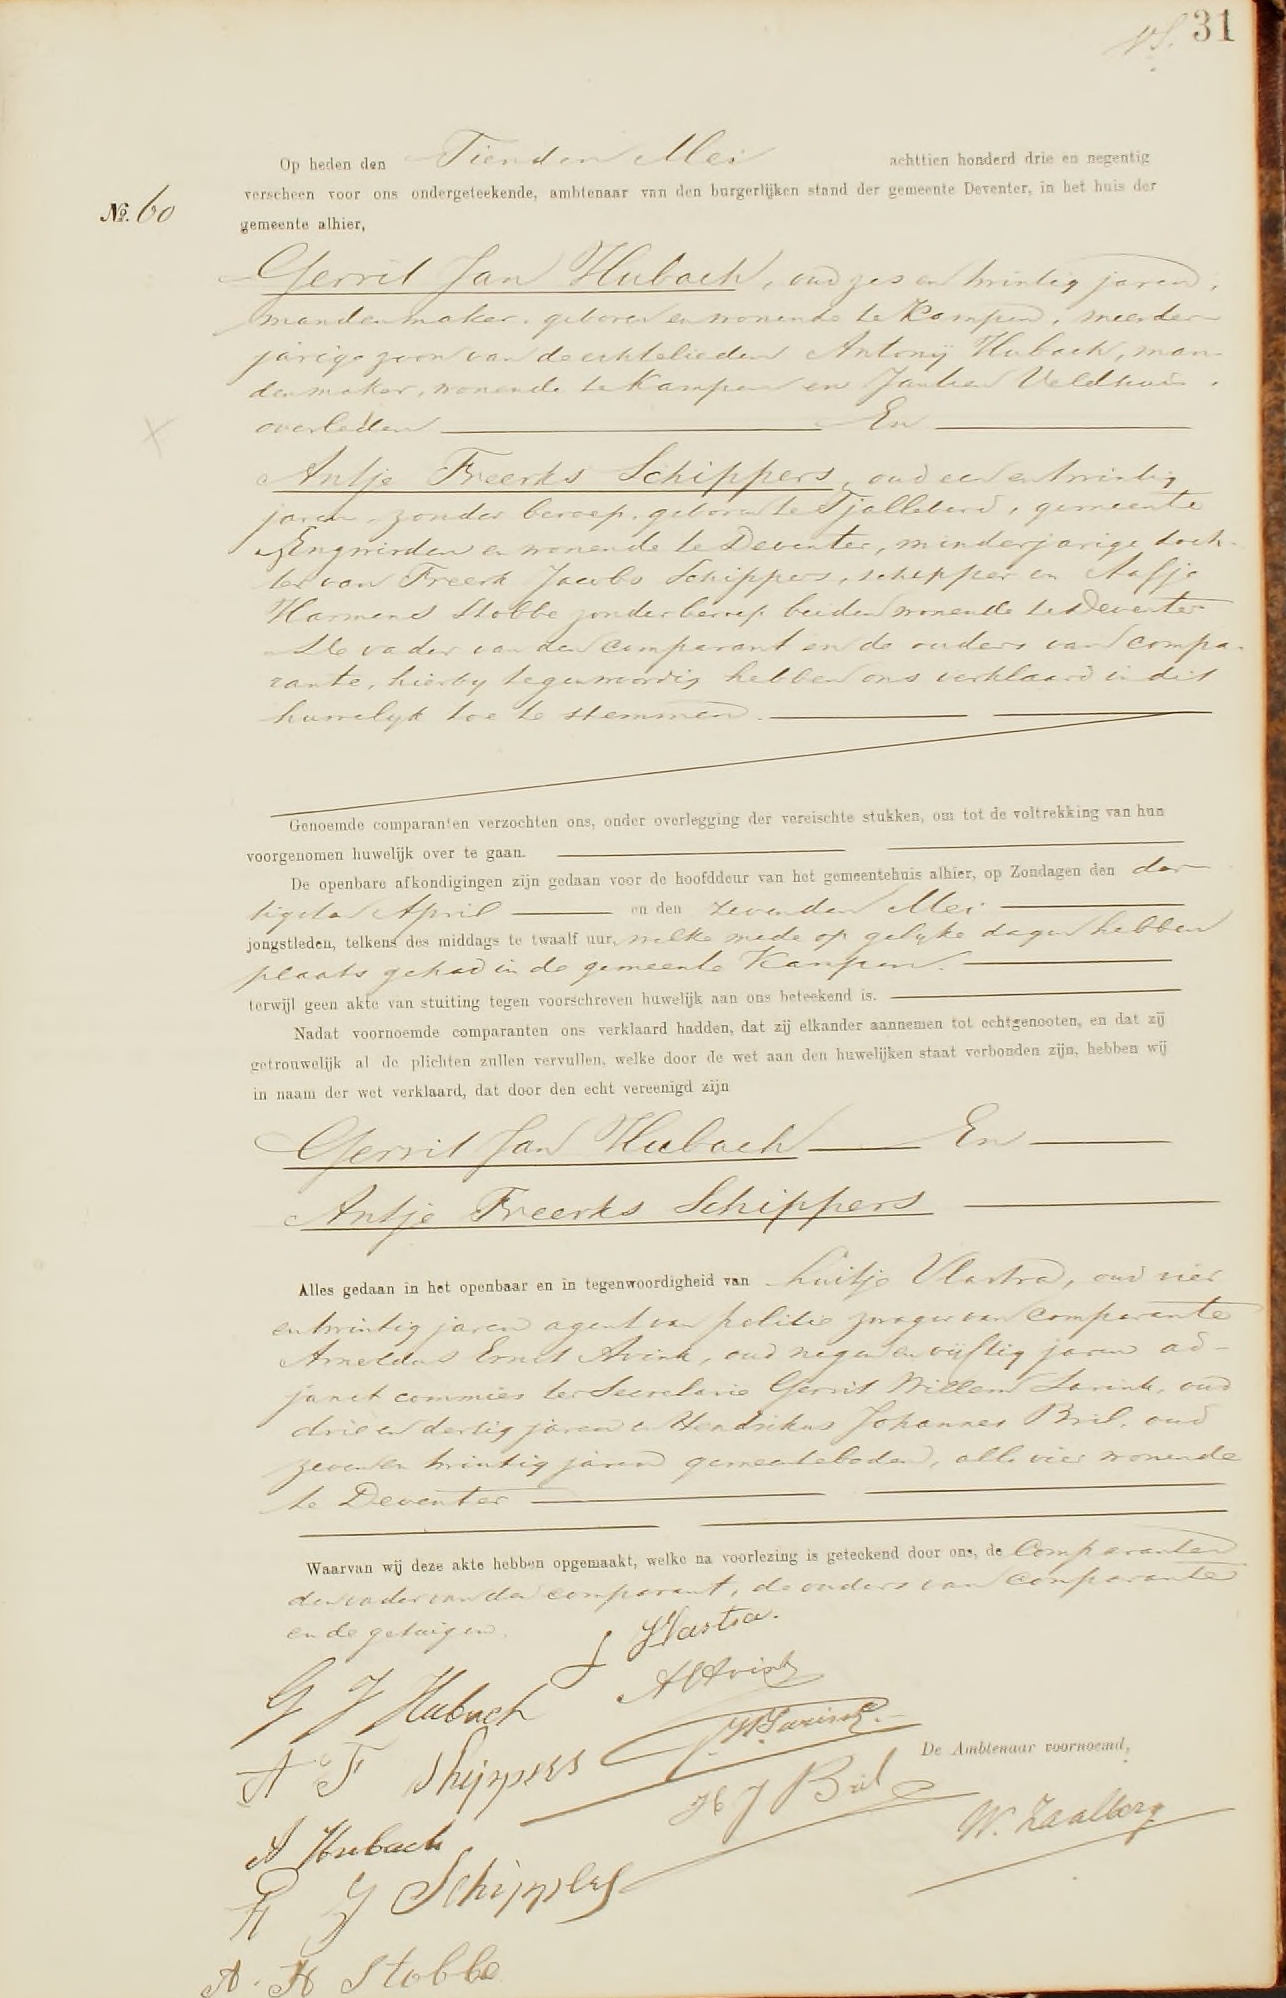 31
Op heden den Tienden Mei achttien honderd drie en negentig
verscheen voor ons ondergeteekende, ambtenaar van den burgerlijken stand der gemeente Deventer, in het huis der
No. 60
gemeente alhier,
Gerrit Jan Hubach, oud zes en twintig jaren,
mandenmaker, geboren en wonende te Kampen, meerder-
jarige zoon van de echtelieden Antonij Hubach, man-
denmaker, wonende te Kampen en Jantien Veldhuis,
overleden En
Antje Freerks Schippers, oud een en twintig
jaren zonder beroep, geboren te Tjallebert, gemeente
Engwirden en wonende te Deventer, minderjarige doch-
ter van Freerk Jacobs Schippers, schipper en Aafje
Harmens Stobbe zonder beroep beiden wonende te Deventer
De vader van den comparant en de ouders van compa-
rante, hierbij tegenwoordig hebben ons verklaard in dit
huwelijk toe te stemmen.
Genoemde comparanten verzochten ons, onder overlegging der vereischte stukken, om tot de voltrekking van hun
voorgenomen huwelijk over te gaan.
De openbare afkondigingen zijn gedaan voor de hoofddeur van het gemeentehuis alhier, op Zondagen den der-
tigsten April en den zevenden Mei
jongstleden, telkens des middags te twaalf uur, welke mede op gelijke dagen hebben
plaats gehad in de gemeente Kampen.
terwijl geen akte van stuiting tegen voorschreven huwelijk aan ons beteekend is.
Nadat voornoemde comparanten ons verklaard hadden, dat zij elkander aannemen tot echtgenooten, en dat zij
getrouwelijk al de plichten zullen vervullen, welke door de wet aan den huwelijken staat verbonden zijn, hebben wij
in naam der wet verklaard, dat door den echt vereenigd zijn
Gerrit Jan Hubach En
Antje Freerks Schippers
Alles gedaan in het openbaar en in tegenwoordigheid van Luitje Vlastra, oud vier
en twintig jaren agent van politie zwager van comparante
Arnoldus Ernst Avink, oud negen en vijftig jaren ad-
junct commies ter Secretarie Gerrit Willem Sarink, oud
drie en dertig jaren en Hendrikus Johannes Bril, oud
zeven en twintig jaren gemeenteboden, alle vier wonende
te Deventer
Waarvan wij deze akte hebben opgemaakt, welke na voorlezing is geteekend door ons, de Comparanten
den vader van den comparant, de ouders van comparante
en de getuigen.
L Vlastra.
G J Hubach
A E Avink
G W Sarink.
A F Shippers
De Ambtenaar voornoemd,
H J Bril
W. Zaalberg
A Hubach
F J Schippers
A. H Stobbe